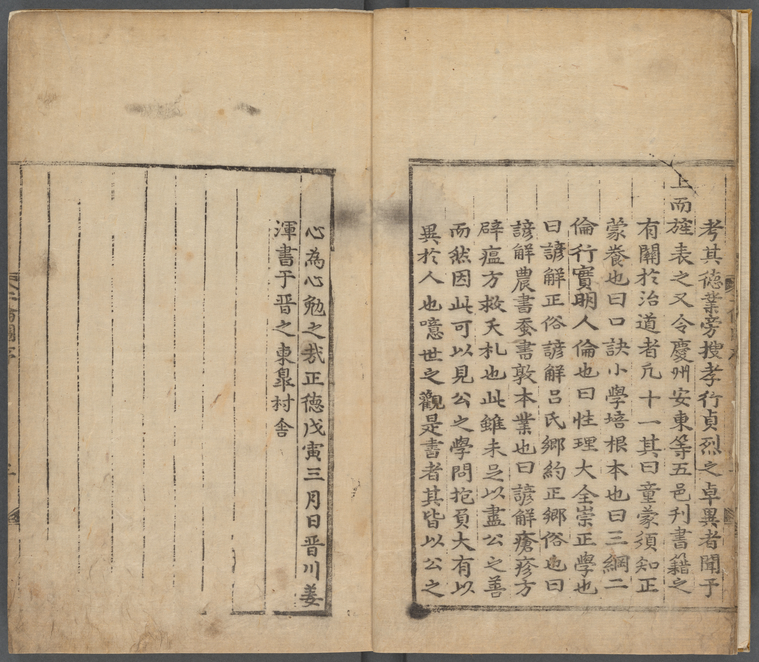 考其德業旁搜孝行貞烈之卓異者聞于
上而旌表之又令慶州安東等五邑刊書籍之
有關於治道者凡十一其曰童蒙須知正
蒙養也曰口訣小學培根本也曰三綱二
倫行實明人倫也曰性理大全崇正學也
曰諺解正俗諺解呂氏鄉約正鄉俗也曰
諺解農書蚕書敦本業也曰諺解瘡疹方
辟瘟方救夭札也此雖未足以盡公之善
而然因此可以見公之學問抱負大有以
異於人也噫世之觀是書者其皆以公之
心為心勉之哉正德戊寅三月日晋川姜
渾書于晋之東皐村舍